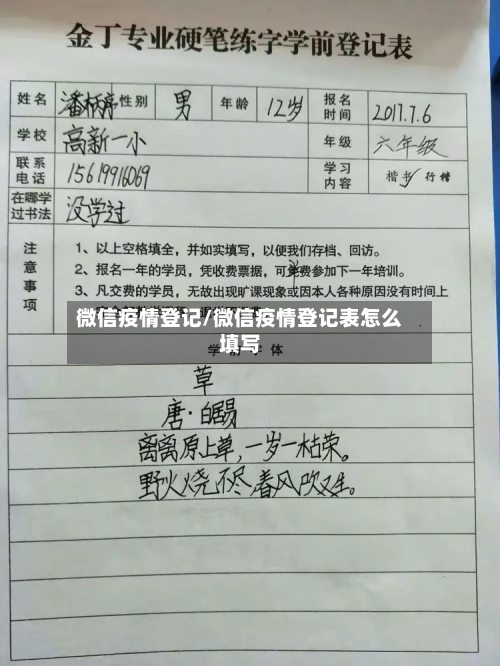 金丁专业硬笔练字学前登记表
姓名 性别 男 年龄 12岁 报名时间 2017.7.6
学校 高新一小 年级 六年级
联系电话 15619916069 学习内容 楷书/行楷
在哪学过书法 没学过
注意事项
1、以上空格填全，并如实填写，以便我们存档、回访。
2、报名一年的学员，凭收费票据，可免费参加下一年培训。
3、凡交费的学员，无故出现旷课现象或因本人各种原因没有时间上
微信疫情登记/微信疫情登记表怎么
填写
学 字体
草
唐·白居易
离离原上草，一岁一枯荣。
野火烧不尽，春风吹又生。